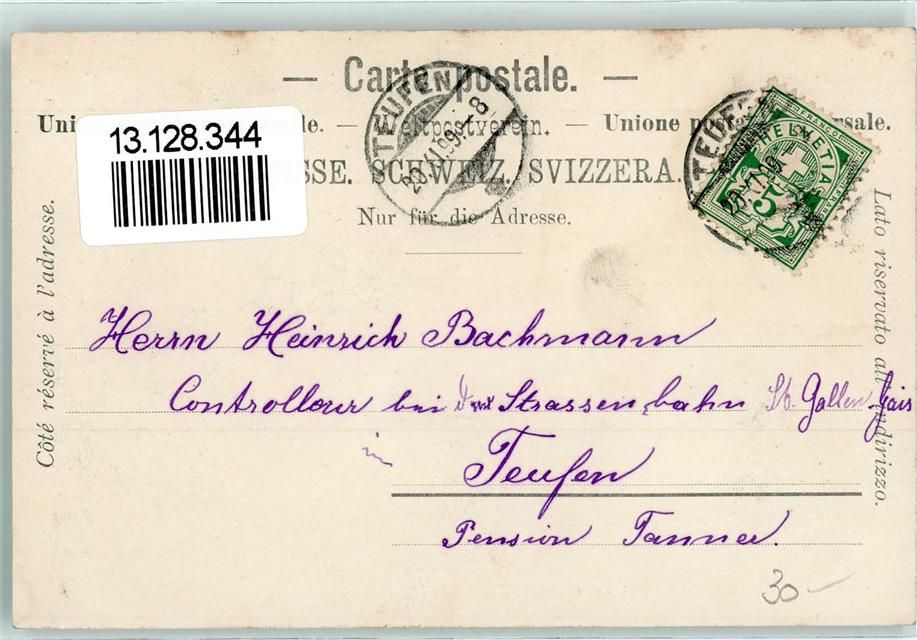 — Carte postale. —
Weltpostverein. — Unione postale
SCHWEIZ. SVIZZERA.
Nur für die Adresse.
13.128.344
TEUFEN
20.VI.99.-8
TEUFEN
HELVETIA
5
Côté réservé à l'adresse.
Lato riservato all'indirizzo.
Herrn Heinrich Bachmann
Controlleur bei der Strassenbahn St. Gallen-Gais
in
Teufen
Pension Tanner.
30 –